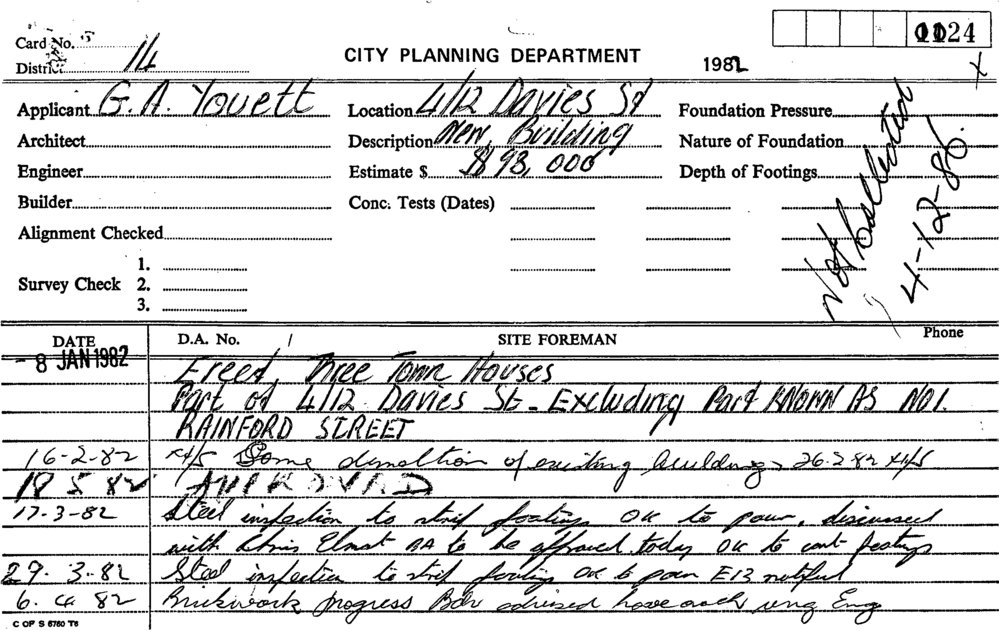 Card No.
0024
District 14
CITY PLANNING DEPARTMENT
1982
Applicant G. A. Youett
Location 4/12 Davies St
Foundation Pressure
Architect
Description New Building
Nature of Foundation
Engineer
Estimate $ $93,000
Depth of Footings
Builder
Conc. Tests (Dates)
Alignment Checked
Not Collected
4-12-86.
Survey Check
1.
2.
3.
DATE
D.A. No.
SITE FOREMAN
Phone
- 8 JAN 1982
Erect, Three Town Houses
Part of 4/12 Davies St - Excluding Part KNOWN AS NO1.
RAINFORD STREET
16-2-82 Some demoltion of existing buildings 26-2-82
18 5 82 APPROVED
17-3-82 Steel inspection to strip footings OK to pour, discussed
with Chris BA to be approved today OK to footings
29. 3-82 Steel inspection to strip footings OK to pour
6. 4 82 Brickwork progress advised Eng
C OF S 6760 T6